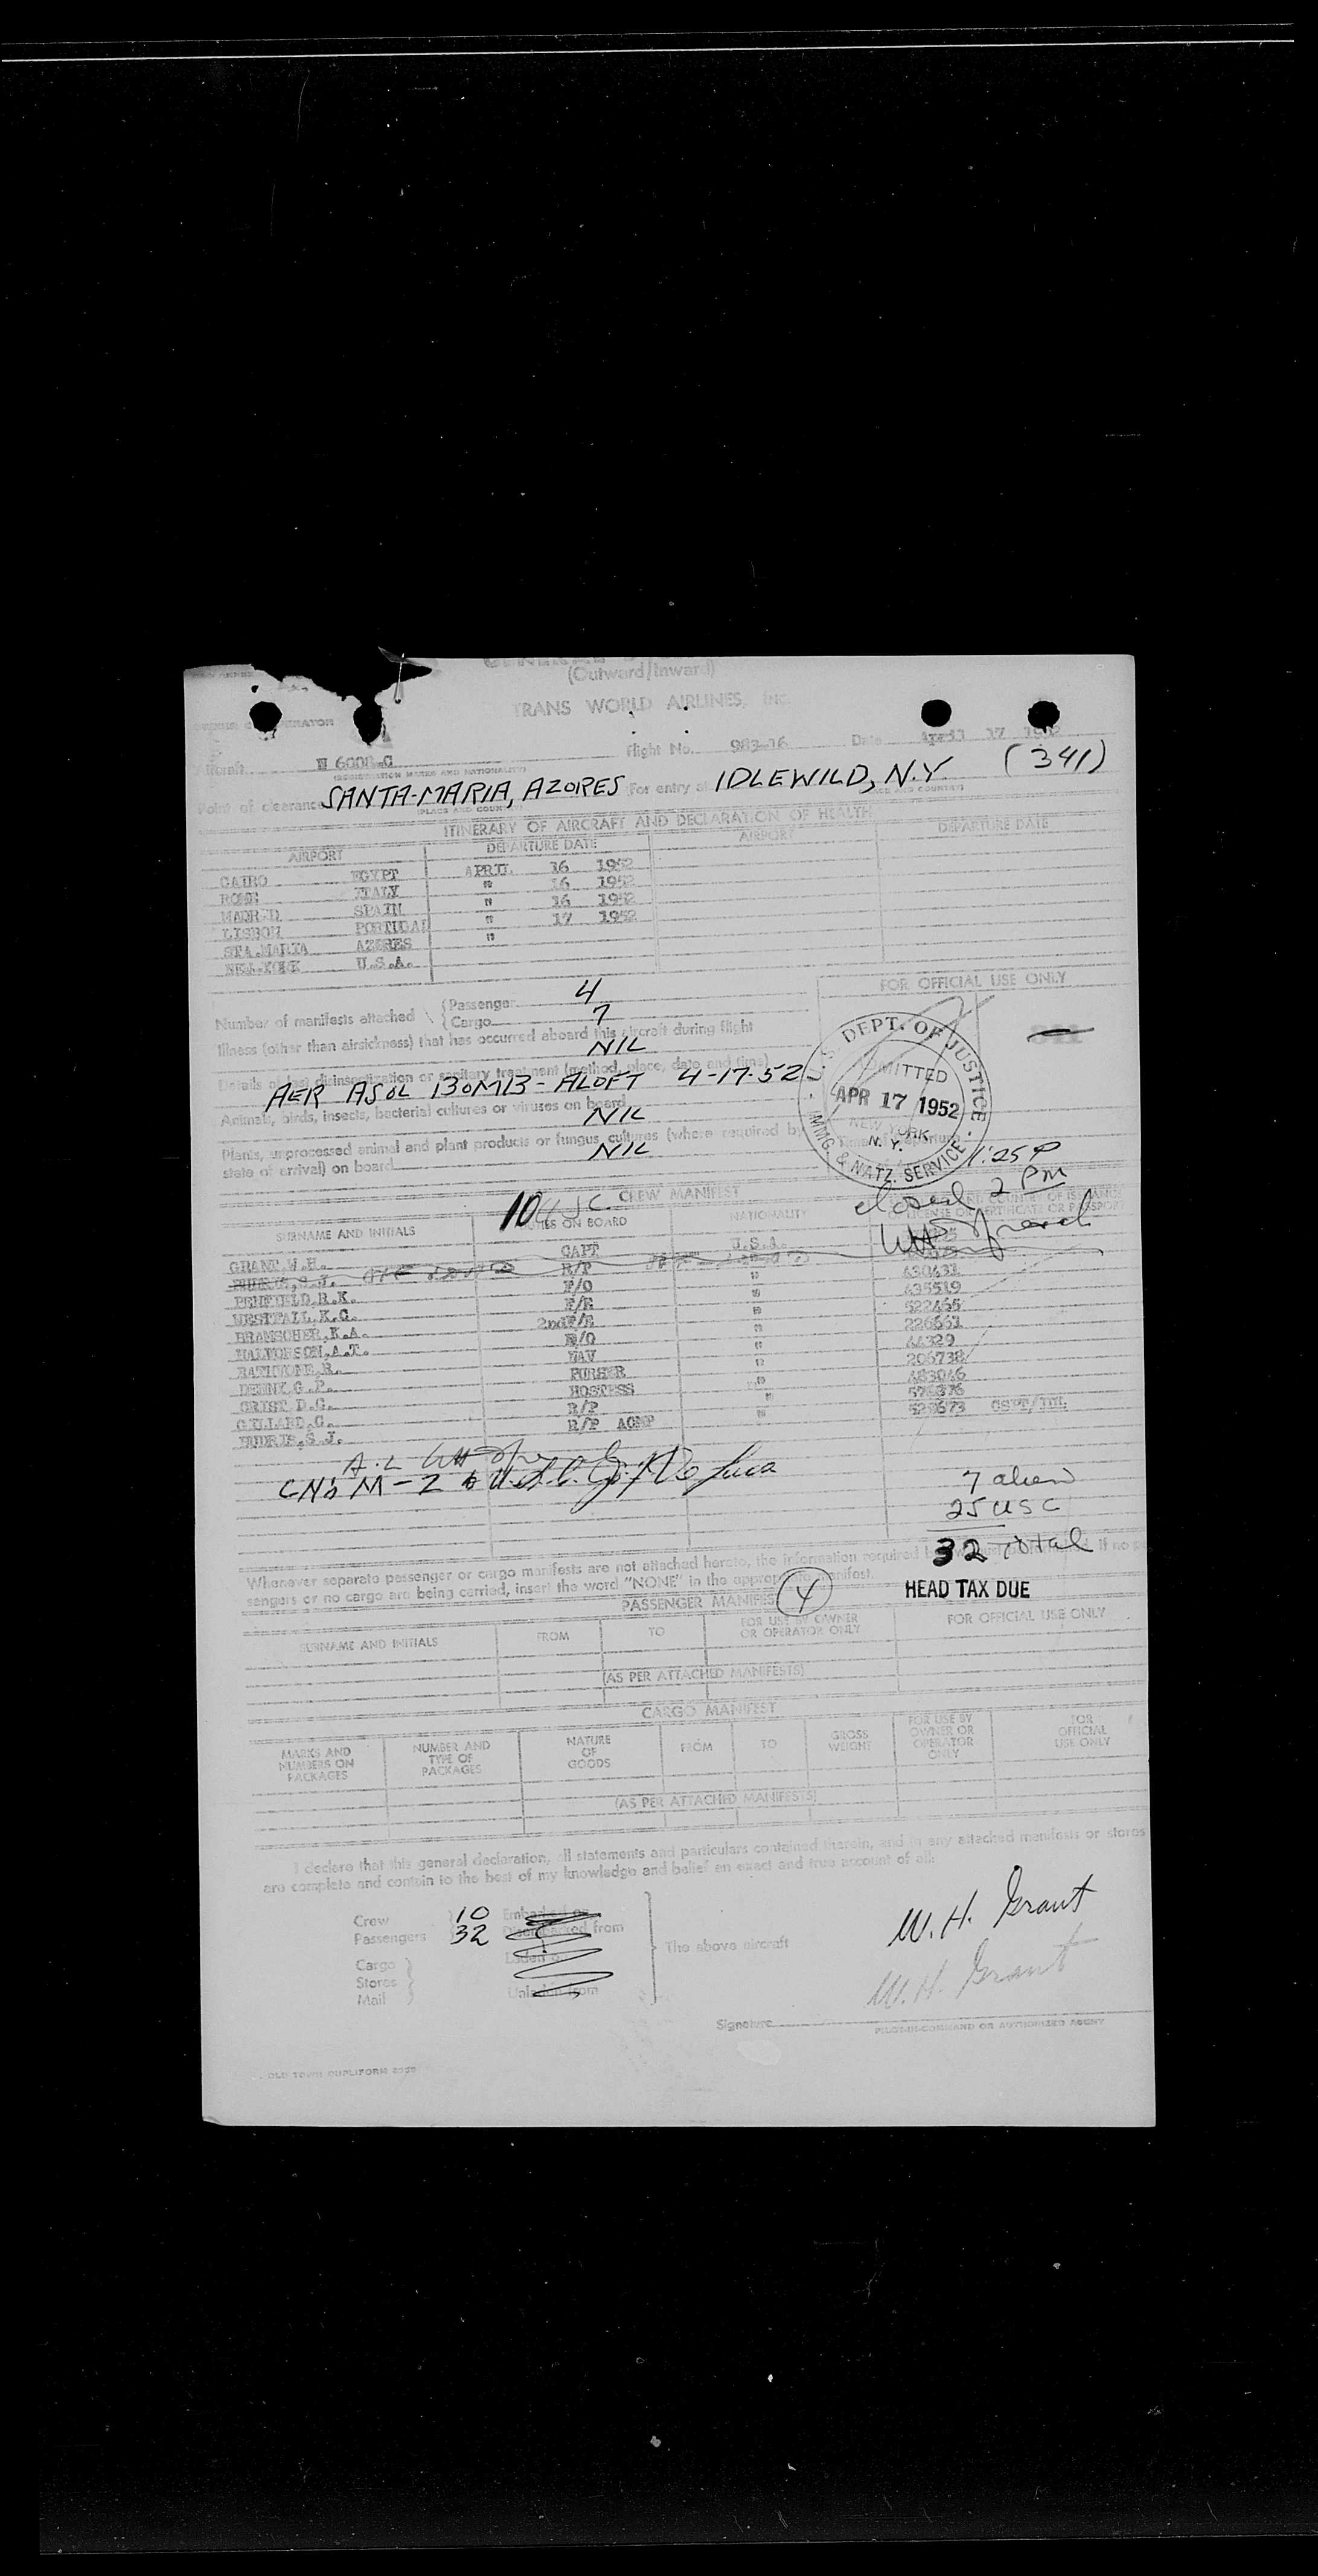 (Outward/Inward)
TRANS WORLD AIRLINES, INC.
Aircraft N 6000-C Flight No. 983-16 Date April 17 1952
(REGISTRATION MARKS AND NATIONALITY)
(341)
Point of clearance SANTA-MARIA, AZORES For entry at IDLEWILD, N.Y.
(PLACE AND COUNTRY) (PLACE AND COUNTRY)
ITINERARY OF AIRCRAFT AND DECLARATION OF HEALTH
AIRPORT DEPARTURE DATE AIRPORT DEPARTURE DATE
CAIRO EGYPT APRIL 16 1952
ROME ITALY " 16 1952
MADRID SPAIN " 16 1952
LISBON PORTUGAL " 17 1952
STA.MARIA AZORES "
NEW.YORK U.S.A.
FOR OFFICIAL USE ONLY
Number of manifests attached { Passenger 4
{ Cargo 7
Illness (other than airsickness) that has occurred aboard this aircraft during flight
NIL
Details of last disinsectization or sanitary treatment (method, place, date and time)
AER ASOL BOMB - ALOFT 4-17-52
Animals, birds, insects, bacterial cultures or viruses on board
NIL
Plants, unprocessed animal and plant products or fungus cultures (where required by
state of arrival) on board NIL
U.S. DEPT. OF JUSTICE
ADMITTED
APR 17 1952
NEW YORK
N. Y.
IMMG. & NATZ. SERVICE
1:25 P
closed 2 PM
10 USC CREW MANIFEST
SURNAME AND INITIALS DUTIES ON BOARD NATIONALITY
GRANT.W.H. CAPT U.S.A.
BUDRIS,S.J. R/P
PENFIELD.R.K. F/O " 430431
WESTFALL.K.G. F/E " 435519
BRAMSCHER.K.A. 2nd F/E " 522465
HALVORSON.A.T. R/O " 226661
RATHVONE.R. NAV " 44329
DENNY.G.P. PURSER " 206738
GRIST.D.G. HOSTESS " 483046
GILLARD.G. R/P " 576376
BUDRIS.S.J. R/P ACMP " 529673
7 alien
25 USC
32 Total
Whenever separate passenger or cargo manifests are not attached hereto, the information required
sengers or no cargo are being carried, insert the word "NONE" in the appropriate manifest.
HEAD TAX DUE
PASSENGER MANIFEST (4)
SURNAME AND INITIALS FROM TO FOR USE BY OWNER OR OPERATOR ONLY FOR OFFICIAL USE ONLY
(AS PER ATTACHED MANIFESTS)
CARGO MANIFEST
MARKS AND NUMBERS ON PACKAGES NUMBER AND TYPE OF PACKAGES NATURE OF GOODS FROM TO GROSS WEIGHT FOR USE BY OWNER OR OPERATOR ONLY FOR OFFICIAL USE ONLY
(AS PER ATTACHED MANIFESTS)
I declare that this general declaration, all statements and particulars contained therein, and in any attached manifests or stores
are complete and contain to the best of my knowledge and belief an exact and true account of all:
Crew 10 Embarked on
Passengers 32 Disembarked from
The above aircraft
Cargo Laden on
Stores
Mail Unladen from
W. H. Grant
W. H. Grant
Signature
PILOT-IN-COMMAND OR AUTHORIZED AGENT
OLD TOWN DUPLIFORM